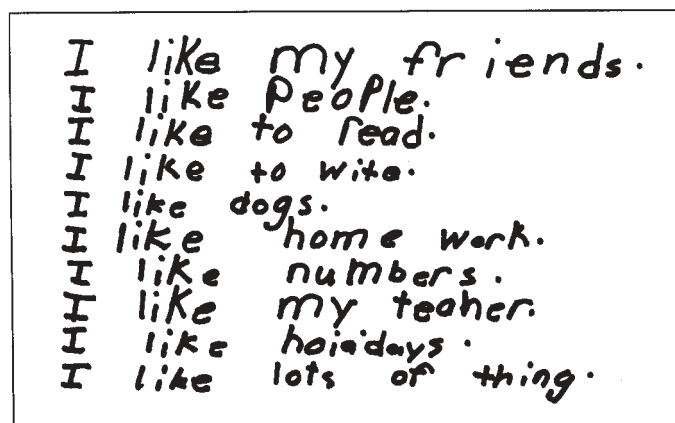 I like my friends.
I like People.
I like to read.
I like to wite.
I like dogs.
I like home work.
I like numbers.
I like my teaher.
I like hoiadays.
I like lots of thing.